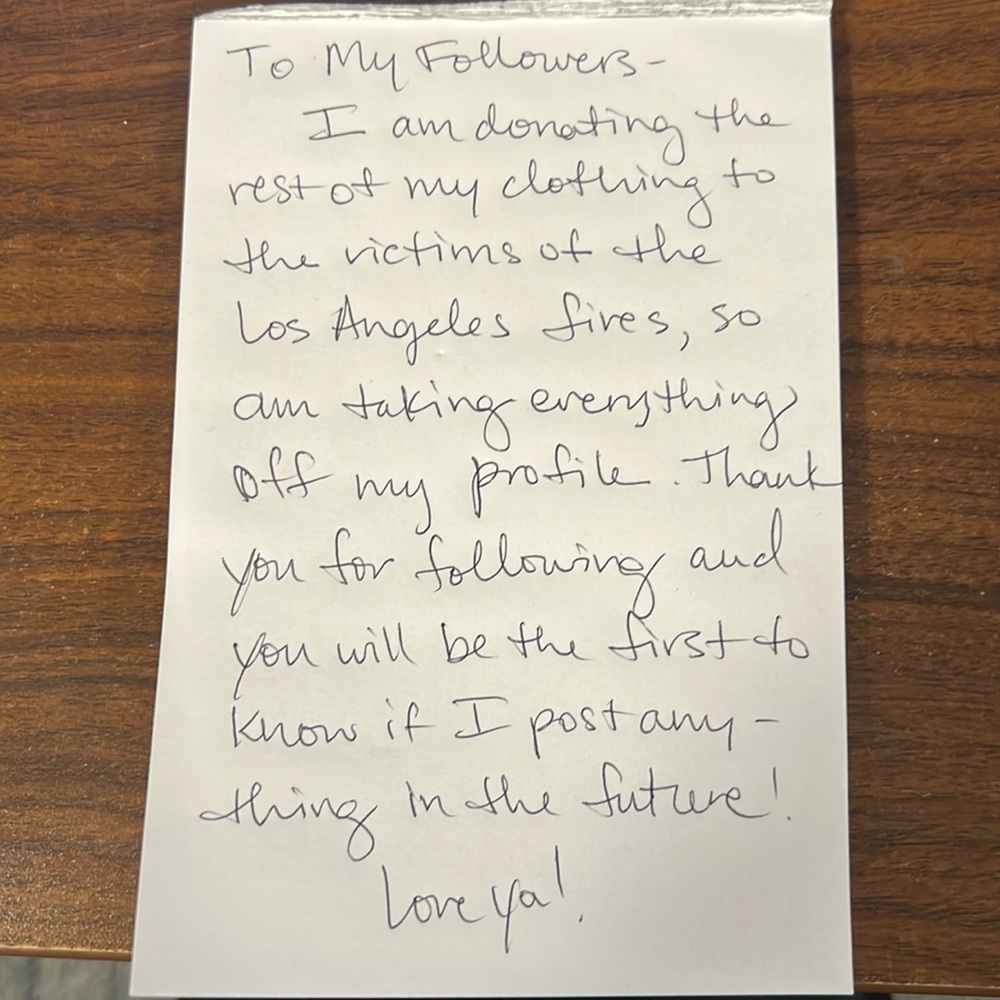 To My Followers-
I am donating the
rest of my clothing to
the victims of the
Los Angeles fires, so
am taking everything
off my profile. Thank
you for following and
you will be the first to
know if I post any-
thing in the future!
Love ya!